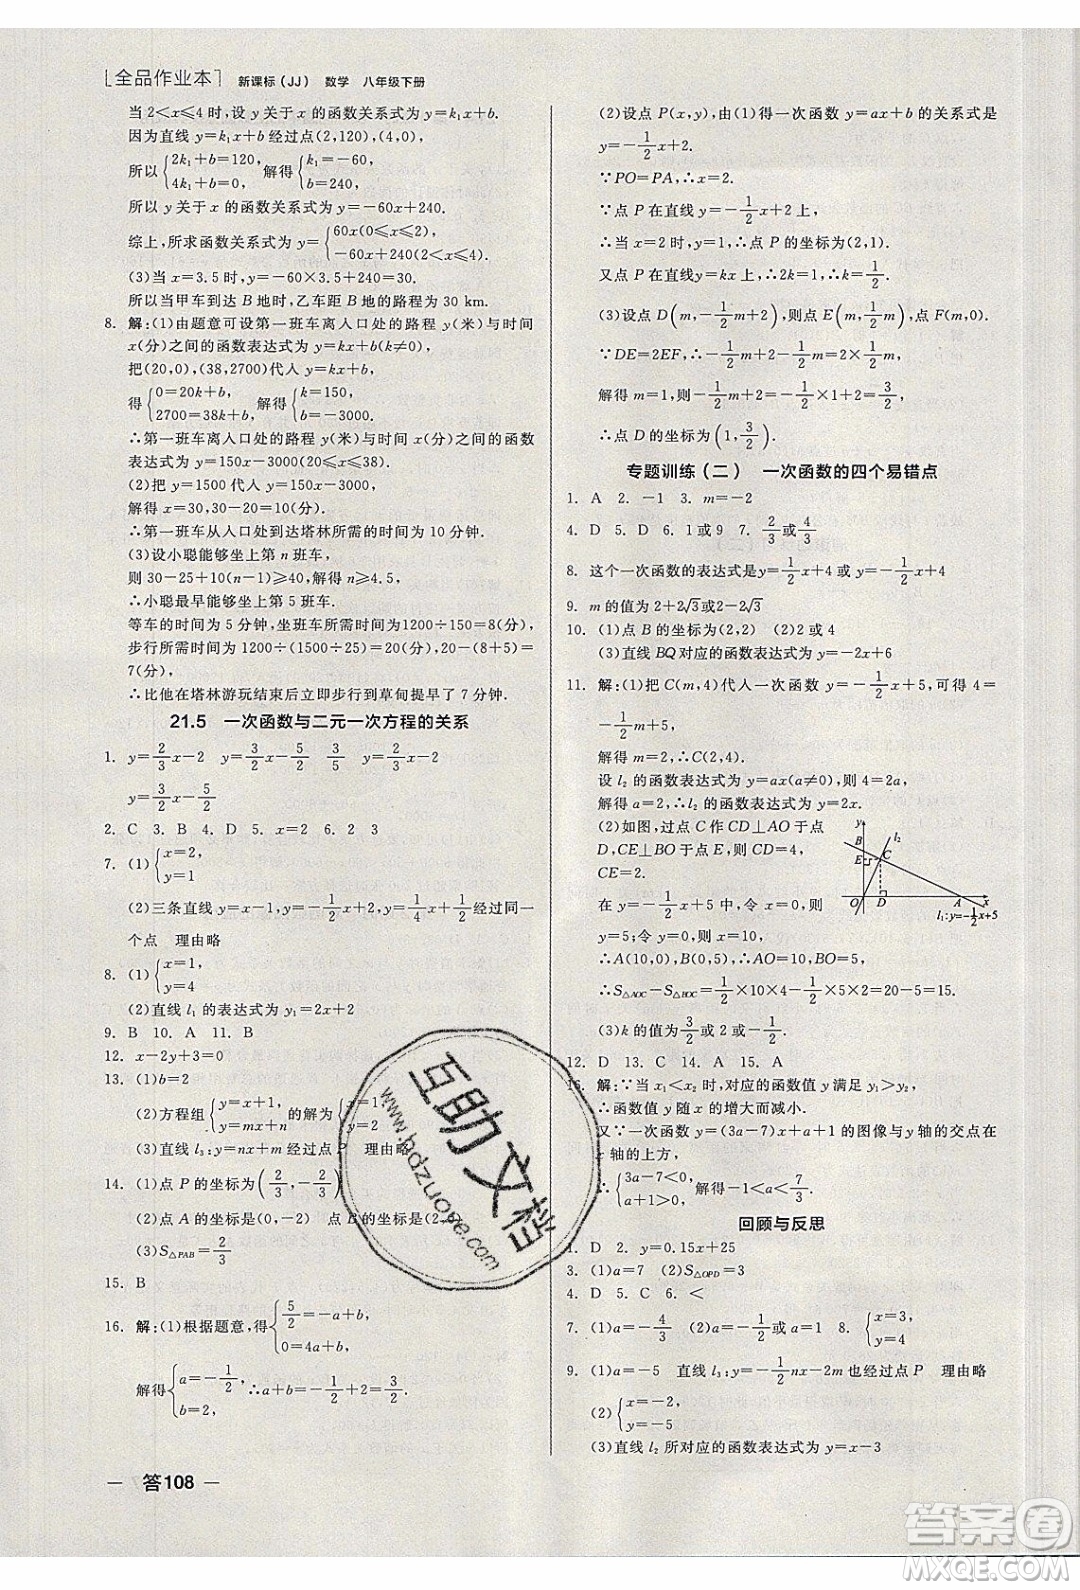 全品作业本 新课标(JJ) 数学 八年级下册
当2<x≤4时,设y关于x的函数关系式为y=k₁x+b.
因为直线y=k₁x+b经过点(2,120),(4,0),
所以{2k₁+b=120, 4k₁+b=0, 解得{k₁=-60, b=240.
所以y关于x的函数关系式为y=-60x+240.
综上,所求函数关系式为y={60x(0≤x≤2), -60x+240(2<x≤4).
(3)当x=3.5时,y=-60×3.5+240=30.
所以当甲车到达B地时,乙车距B地的路程为30 km.
8. 解:(1)由题意可设第一班车离入口处的路程y(米)与时间
x(分)之间的函数表达式为y=kx+b(k≠0),
把(20,0),(38,2700)代入y=kx+b,
得{0=20k+b, 2700=38k+b, 解得{k=150, b=-3000.
∴第一班车离入口处的路程y(米)与时间x(分)之间的函数
表达式为y=150x-3000(20≤x≤38).
(2)把y=1500代入y=150x-3000,
解得x=30,30-20=10(分),
∴第一班车从入口处到达塔林所需的时间为10分钟.
(3)设小聪能够坐上第n班车,
则30-25+10(n-1)≥40,解得n≥4.5,
∴小聪最早能够坐上第5班车.
等车的时间为5分钟,坐班车所需时间为1200÷150=8(分),
步行所需时间为1200÷(1500÷25)=20(分),20-(8+5)=
7(分),
∴比他在塔林游玩结束后立即步行到草甸提早了7分钟.
21.5 一次函数与二元一次方程的关系
1. y=2/3x-2 y=3/2x-5/2 3/2 y=2/3x-2
y=3/2x-5/2
2. C 3. B 4. D 5. x=2 6. 2 3
7. (1){x=2, y=1
(2)三条直线y=3-x,y=x/2,y=x/4+1/2经过同一
个点 理由略
8. (1){x=1, y=4
(2)直线l₁的表达式为y₁=2x+2
9. B 10. A 11. B
12. x-2y+3=0
13. (1)b=2
(2)方程组{y=x+1, y=mx+n的解为{x=1, y=2
(3)直线l₃:y=nx+m经过点P 理由略
14. (1)点P的坐标为(2/3,-2/3)
(2)点A的坐标是(0,-2) 点B的坐标是(2,
(3)S△PAB=2/3
15. B
16. 解:(1)根据题意,得{5/2=-a+b, 0=4a+b,
解得{a=-1/2, b=2, ∴a+b=-1/2+2=3/2.
— 答108 —
(2)设点P(x,y),由(1)得一次函数y=ax+b的关系式是
y=-1/2x+2.
∵PO=PA,∴x=2.
∵点P在直线y=-1/2x+2上,
∴当x=2时,y=1,∴点P的坐标为(2,1).
又点P在直线y=kx上,∴2k=1,∴k=1/2.
(3)设点D(m,-1/2m+2),则点E(m,1/2m),F(m,0).
∵DE=2EF,∴-1/2m+2-1/2m=2×1/2m,
解得m=1,∴-1/2m+2=-1/2×1+2=3/2,
∴点D的坐标为(1,3/2).
专题训练(二) 一次函数的四个易错点
1. A 2. -1 3. m=-2
4. D 5. D 6. 1或9 7. 2/3或4/3
8. 这个一次函数的表达式是y=1/2x+4或y=-1/2x+4
9. m的值为2+2√3或2-2√3
10. (1)点B的坐标为(2,2) (2)2或4
(3)直线BQ对应的函数表达式为y=-2x+6
11. 解:(1)把C(m,4)代入一次函数y=-1/2x+5,可得4=
-1/2m+5,
解得m=2,∴C(2,4).
设l₂的函数表达式为y=ax(a≠0),则4=2a,
解得a=2,∴l₂的函数表达式为y=2x.
(2)如图,过点C作CD⊥AO于点
D,CE⊥BO于点E,则CD=4,
CE=2.
在y=-1/2x+5中,令x=0,则
y=5;令y=0,则x=10,
∴A(10,0),B(0,5),∴AO=10,BO=5,
∴S△AOC-S△BOC=1/2×10×4-1/2×5×2=20-5=15.
(3)k的值为3/2或2或-1/2
y B E C l₂ O D A x l₁:y=-1/2x+5
12. D 13. C 14. A 15. A
16. 解:∵当x₁<x₂时,对应的函数值y满足y₁>y₂,
∴函数值y随x的增大而减小.
又∵一次函数y=(3a-7)x+a+1的图像与y轴的交点在
轴的上方,
∴{3a-7<0, a+1>0, 解得-1<a<7/3.
回顾与反思
1. D 2. y=0.15x+25
3. (1)a=7 (2)S△OPD=3
4. D 5. C 6. <
7. (1)a=-4/3 (2)a=-1/2或a=1 8. {x=3, y=1
9. (1)a=-5 直线l₃:y=-1/2nx-2m也经过点P 理由略
(2){x=-2, y=-5
(3)直线l₂所对应的函数表达式为y=x-3
互助文档
www.hdzuoye.com
答案圈
MXQE.COM